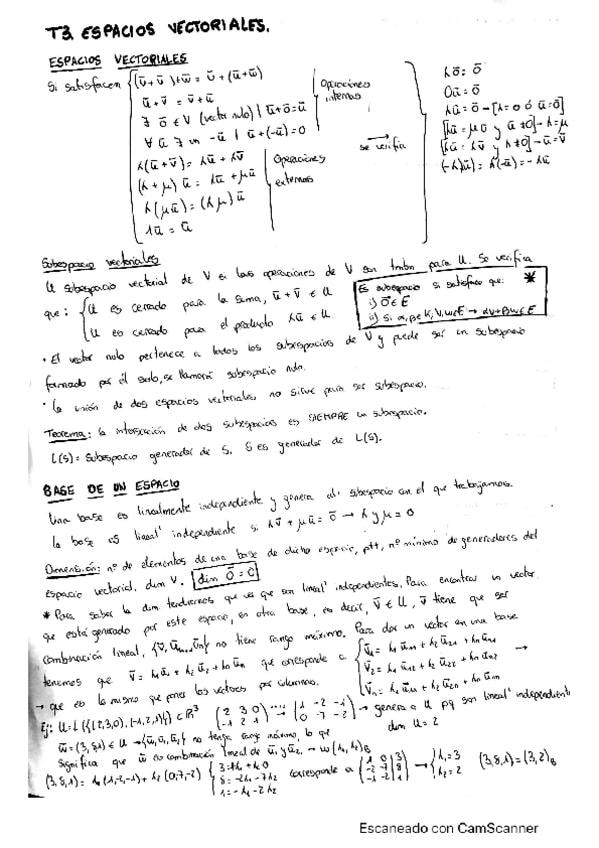 T3. ESPACIOS VECTORIALES.
ESPACIOS VECTORIALES
Si satisfacen { (ū+v̄)+w̄ = ū+(ū+w̄)
ū+v̄ = v̄+ū
∃ ō ∈ V (vector nulo) | ū+ō=ū
∀ ū ∃ un -ū | ū+(-ū)=0
Operaciones internas
λ(ū+v̄) = λū + λv̄
(λ+μ)ū = λū + μū
λ(μū) = (λμ)ū
1ū = ū
Operaciones externas
se verifica →
λō = ō
0ū = ō
λū = ō → [λ=0 ó ū=ō]
[λū = μū y ū ≠ 0] → λ=μ
[λū = λv̄ y λ≠0] → ū=v̄
(-λ)ū = λ(-ū) = -λū
Subespacio vectoriales
U subespacio vectorial de V si las operaciones de V son tmbn para U. Se verifica
que: { U es cerrado para la suma, ū+v̄ ∈ U
U es cerrado para el producto λū ∈ U.
Es subespacio si satisface que: *
i) ō ∈ E
ii) Si α,β ∈ K; V,W ∈ E → αV+βW ∈ E
· El vector nulo pertenece a todos los subespacios de V y puede ser un subespacio
formado por él solo, se llamará subespacio nulo.
· La unión de dos espacios vectoriales no sirve para ser subespacio.
Teorema: la intersección de dos subespacios es SIEMPRE un subespacio.
L(S) = Subespacio generador de S. S es generador de L(S).
BASE DE UN ESPACIO
Una base es linealmente independiente y genera al subespacio con el que trabajamos.
la base es lineal' independiente si λv̄ + μū = ō → λ y μ = 0
Dimensión: nº de elementos de una base de dicho espacio, ptt, nº mínimo de generadores del
espacio vectorial. dim V. dim ō = 0
* Para saber la dim tendremos que ver que son lineal' independientes. Para encontrar un vector
que está generado por este espacio, en otra base, es decir, v̄ ∈ U, v̄ tiene que ser
combinación lineal, {v̄, ū₁...ūₙ} no tiene rango máximo. Para dar un vector en una base
tenemos que v̄ = λ₁ū₁ + λ₂ū₂ + λnūn que corresponde a { v̄₁ = λ₁ū₁₁ + λ₂ū₂₁ + λnūn₁
v̄₂ = λ₁ū₁₂ + λ₂ū₂₂ + λnūn₂ →
v̄n = λ₁ū₁n + λ₂ū₂n + λnūnn
→ que es lo mismo que poner los vectores por columnas.
Ej: U = L({(2,3,0), (-1,2,1)}) ⊂ R³ (2 3 0 / -1 2 1) ... → (1 -2 -1 / 0 7 -2) → genera a U pq son lineal' independientes
dim U = 2
w̄ = (3,8,1) ∈ U → {w̄, ū₁, ū₂} no tenga rango máximo, lo que
significa que w̄ no combinación lineal de ū₁ y ū₂. → w(λ₁, λ₂)B
(3,8,1) = λ₁(1,-2,-1) + λ₂(0,7,-2) { 3 = 1λ₁ + λ₂0
8 = -2λ₁ - 7λ₂
1 = -λ₁ - 2λ₂
corresponde a (1 0 | 3 / -2 -7 | 8 / -1 -2 | 1) → { λ₁ = 3
λ₂ = 2
(3,8,1) = (3,2)B
Escaneado con CamScanner